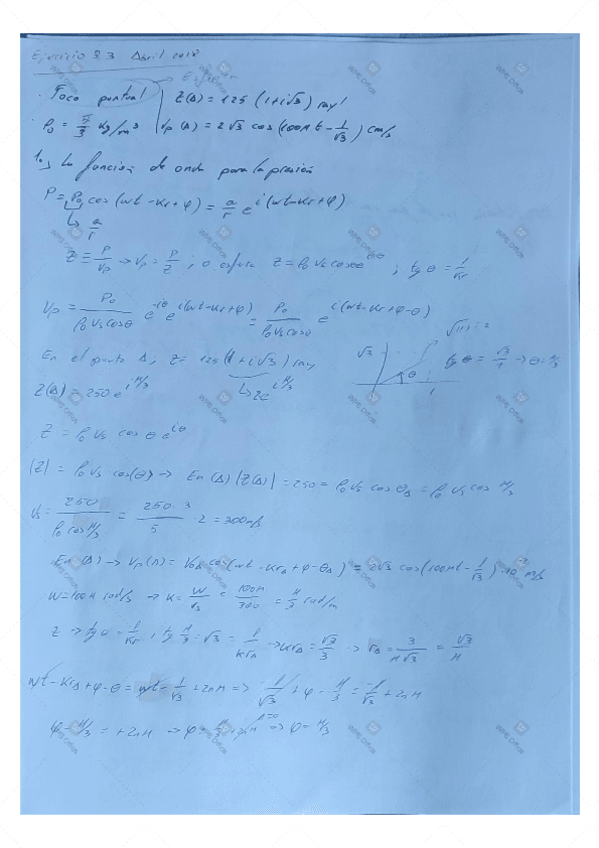 Ejercicio 3 Abril 2018
→ Esférica
· Foco puntual | Z(A) = 125 (1+i√3) rayl
· ρ0 = 5/3 kg/m³ | Vp(A) = 2√3 cos(100πt - 1/√3) cm/s
1º) La función de onda para la presión
P = P0 cos(wt - kr + φ) = a/r e^i(wt-kr+φ)
↳ a/r
Z = P/Vp → Vp = P/Z ; o esfera Z = ρ0 Vs cosθ e^iθ ; tg θ = 1/kr
Vp = P0/(ρ0 Vs cosθ) e^-iθ e^i(wt-kr+φ) = P0/(ρ0 Vs cosθ) e^i(wt-kr+φ-θ)
En el punto A, Z = 125(1+i√3) rayl
↳ 2e^iπ/3
√3 θ 1 √1+3 = 2
tg θ = √3/1 → θ = π/3
Z(A) = 250 e^iπ/3
Z = ρ0 Vs cos θ e^iθ
|Z| = ρ0 Vs cos(θ) → En (A) |Z(A)| = 250 = ρ0 Vs cos θA = ρ0 Vs cos π/3
Vs = 250/(ρ0 cos π/3) = 250·3/5 · 2 = 300 m/s
En (A) → Vp(A) = V0A cos(wt - krA + φ - θA) = 2√3 cos(100πt - 1/√3) · 10^-2 m/s
W = 100π rad/s → k = W/Vs = 100π/300 = π/3 rad/m
Z → tg θ = 1/kr ; tg π/3 = √3 = 1/krA → krA = √3/3 → rA = 3/(π√3) = √3/π
wt - krA + φ - θ = wt - 1/√3 + 2nπ => -1/√3 + φ - π/3 = -1/√3 + 2nπ
φ - π/3 = +2nπ → φ = π/3 + 2nπ n=0 => φ = π/3